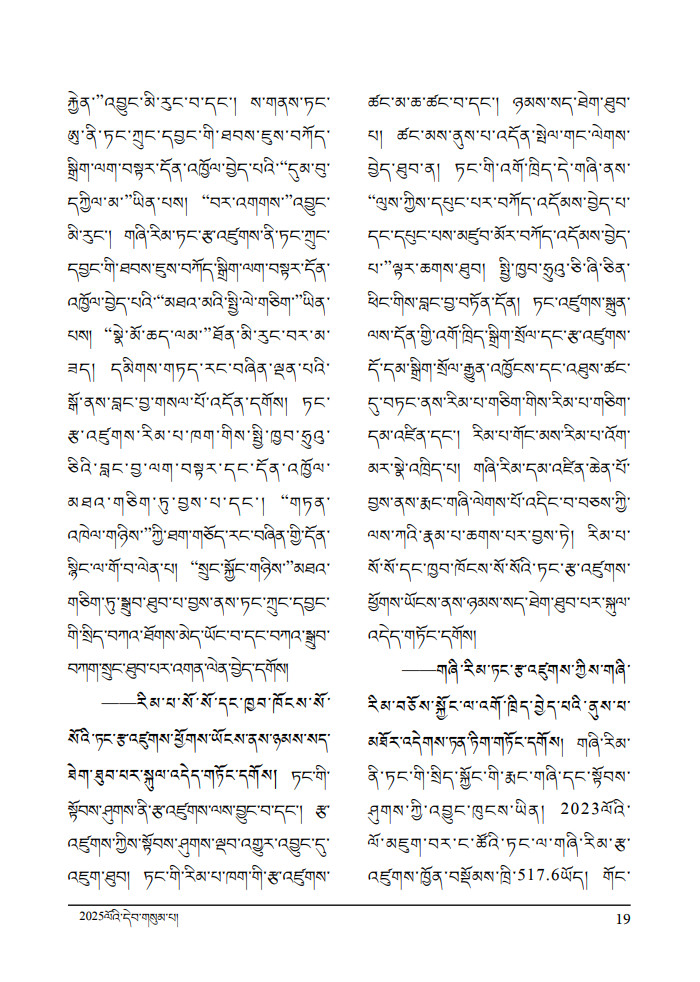 རྐྱེན་”འབྱུང་མི་རུང་བ་དང་། ས་གནས་ཏང་
ཨུ་ནི་ཏང་ཀྲུང་དབྱང་གི་ཐབས་ཇུས་བཀོད་
སྒྲིག་ལག་བསྟར་དོན་འཁྱོལ་བྱེད་པའི་“དུམ་བུ་
དཀྱིལ་མ་”ཡིན་པས། “བར་འགགས་”འབྱུང་
མི་རུང་། གཞི་རིམ་ཏང་རྩ་འཛུགས་ནི་ཏང་ཀྲུང་
དབྱང་གི་ཐབས་ཇུས་བཀོད་སྒྲིག་ལག་བསྟར་དོན་
འཁྱོལ་བྱེད་པའི་“མཐའ་མའི་སྤྱི་ལེ་གཅིག་”ཡིན་
པས། “སྣེ་མོ་ཆད་ལམ་”ཐོན་མི་རུང་བར་མ་
ཟད། དམིགས་གཏད་རང་བཞིན་ལྡན་པའི་
སྒོ་ནས་བླང་བྱ་གསལ་པོ་འདོན་དགོས། ཏང་
རྩ་འཛུགས་རིམ་པ་ཁག་གིས་སྤྱི་ཁྱབ་ཧྲུའུ་
ཅིའི་བླང་བྱ་ལག་བསྟར་དང་དོན་འཁྱོལ་
མཐའ་གཅིག་ཏུ་བྱས་པ་དང་། “གཏན་
འཁེལ་གཉིས་”ཀྱི་ཐག་གཅོད་རང་བཞིན་གྱི་དོན་
སྙིང་ལ་གོ་བ་ལེན་པ། “སྲུང་སྐྱོང་གཉིས་”མཐའ་
གཅིག་ཏུ་སྒྲུབ་ཐུབ་པ་བྱས་ནས་ཏང་ཀྲུང་དབྱང་
གི་སྲིད་བཀའ་ཐོགས་མེད་ཡོང་བ་དང་བཀའ་སྒྲུབ་
བཀག་སྲུང་ཐུབ་པར་འགན་ལེན་བྱེད་དགོས།
——རིམ་པ་སོ་སོ་དང་ཁྱབ་ཁོངས་སོ་
སོའི་ཏང་རྩ་འཛུགས་ཕྱོགས་ཡོངས་ནས་ཉམས་སད་
ཐེག་ཐུབ་པར་སྐུལ་འདེད་གཏོང་དགོས། ཏང་གི་
སྟོབས་ཤུགས་ནི་རྩ་འཛུགས་ལས་བྱུང་བ་དང་། རྩ་
འཛུགས་ཀྱིས་སྟོབས་ཤུགས་ལྡབ་འགྱུར་འབྱུང་དུ་
འཇུག་ཐུབ། ཏང་གི་རིམ་པ་ཁག་གི་རྩ་འཛུགས་
ཚང་མ་ཆ་ཚང་བ་དང་། ཉམས་སད་ཐེག་ཐུབ་
པ། ཚང་མས་ནུས་པ་འདོན་སྤེལ་གང་ལེགས་
བྱེད་ཐུབ་ན། ཏང་གི་འགོ་ཁྲིད་དེ་གཞི་ནས་
“ལུས་ཀྱིས་དཔུང་པར་བཀོད་འདོམས་བྱེད་པ་
དང་དཔུང་པས་མཛུབ་མོར་བཀོད་འདོམས་བྱེད་
པ་”ལྟར་ཆགས་ཐུབ། སྤྱི་ཁྱབ་ཧྲུའུ་ཅི་ཞི་ཅིན་
ཕིང་གིས་བླང་བྱ་བཏོན་དོན། ཏང་འཛུགས་སྐྲུན་
ལས་དོན་གྱི་འགོ་ཁྲིད་སྒྲིག་སྲོལ་དང་རྩ་འཛུགས་
དོ་དམ་སྒྲིག་སྲོལ་རྒྱུན་འཁྱོངས་དང་འཐུས་ཚང་
དུ་བཏང་ནས་རིམ་པ་གཅིག་གིས་རིམ་པ་གཅིག་
དམ་འཛིན་དང་། རིམ་པ་གོང་མས་རིམ་པ་འོག་
མར་སྣེ་འཁྲིད་པ། གཞི་རིམ་དམ་འཛིན་ཆེན་པོ་
བྱས་ནས་རྨང་གཞི་ལེགས་པོ་འདིང་བ་བཅས་ཀྱི་
ལས་ཀའི་རྣམ་པ་ཆགས་པར་བྱས་ཏེ། རིམ་པ་
སོ་སོ་དང་ཁྱབ་ཁོངས་སོ་སོའི་ཏང་རྩ་འཛུགས་
ཕྱོགས་ཡོངས་ནས་ཉམས་སད་ཐེག་ཐུབ་པར་སྐུལ་
འདེད་གཏོང་དགོས།
——གཞི་རིམ་ཏང་རྩ་འཛུགས་ཀྱིས་གཞི་
རིམ་བཅོས་སྐྱོང་ལ་འགོ་ཁྲིད་བྱེད་པའི་ནུས་པ་
མཐོར་འདེགས་ཏན་ཏིག་གཏོང་དགོས། གཞི་རིམ་
ནི་ཏང་གི་སྲིད་སྐྱོང་གི་རྨང་གཞི་དང་སྟོབས་
ཤུགས་ཀྱི་འབྱུང་ཁུངས་ཡིན། 2023ལོའི་
ལོ་མཇུག་བར་ང་ཚོའི་ཏང་ལ་གཞི་རིམ་རྩ་
འཛུགས་ཁྱོན་བསྡོམས་ཁྲི་517.6ཡོད། གོང་
2025ལོའི་དེབ་གསུམ་པ། 19